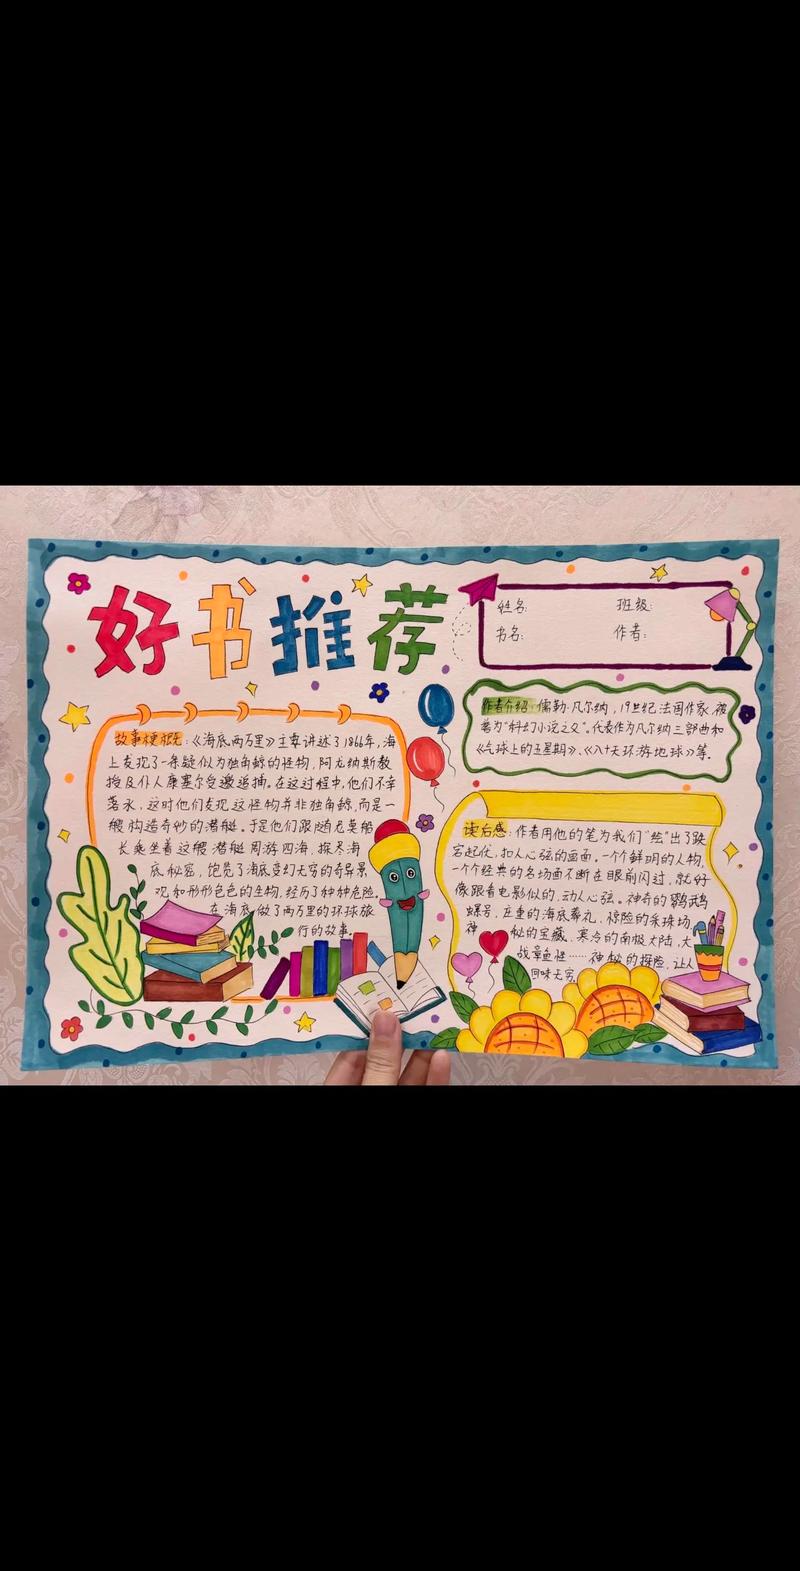 好书推荐
姓名: 班级:
书名: 作者:
故事梗概:《海底两万里》主要讲述了1866年,海
上发现了一条疑似为独角鲸的怪物,阿龙纳斯教
授及仆人康塞尔受邀追捕。在这过程中,他们不幸
落水,这时他们发现这怪物并非独角鲸,而是一
艘构造奇妙的潜艇。于是他们跟随尼莫船
长乘坐着这艘潜艇周游四海,探尽海
底秘密,饱览了海底变幻无穷的奇异景
观和形形色色的生物,经历了种种危险。
在海底做了两万里的环球旅
行的故事。
作者介绍:儒勒·凡尔纳,19世纪法国作家,被
誉为"科幻小说之父"。代表作为凡尔纳三部曲和
《气球上的五星期》、《八十天环游地球》等。
读后感:作者用他的笔为我们"绘"出了跌
宕起伏,扣人心弦的画面。一个个鲜明的人物,
一个个经典的名场面不断在眼前闪过,就好
像跟看电影似的,动人心弦。神奇的鹦鹉
螺号,庄重的海底葬礼,惊险的采珠场
神秘的宝藏、寒冷的南极大陆,大
战章鱼怪……神秘的探险,让人
回味无穷。